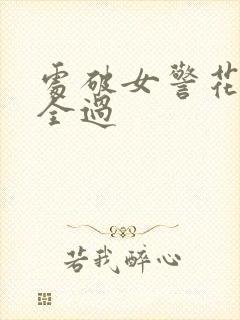 處破女警花
全過
若我醉心